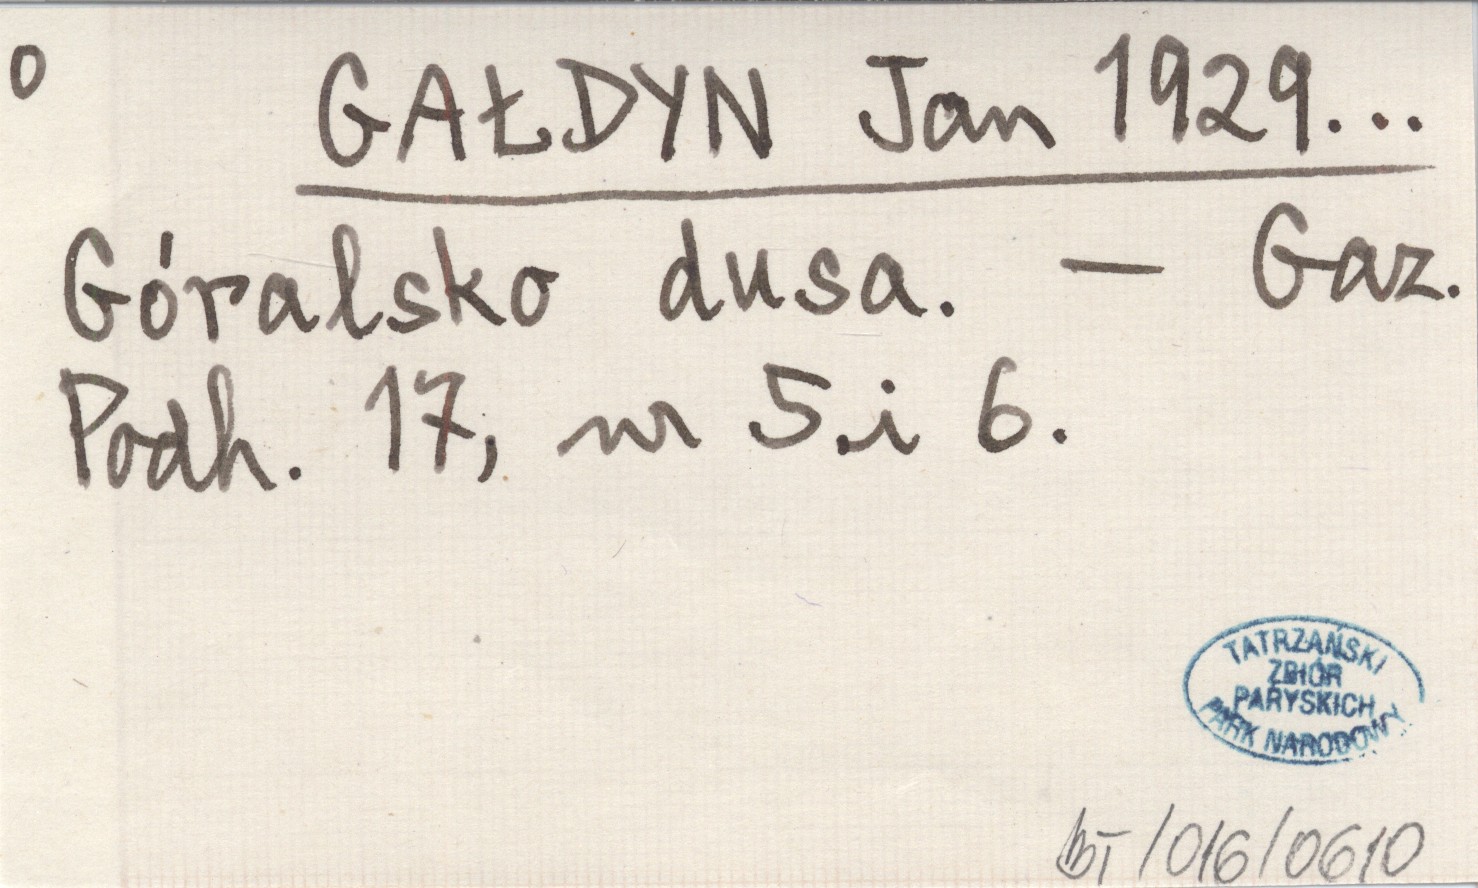 o
GAŁDYN Jan 1929...
Góralsko dusa. — Gaz.
Podh. 17, nr 5 i 6.
TATRZAŃSKI
ZBIÓR
PARYSKICH
PARK NARODOWY
BT/016/0610